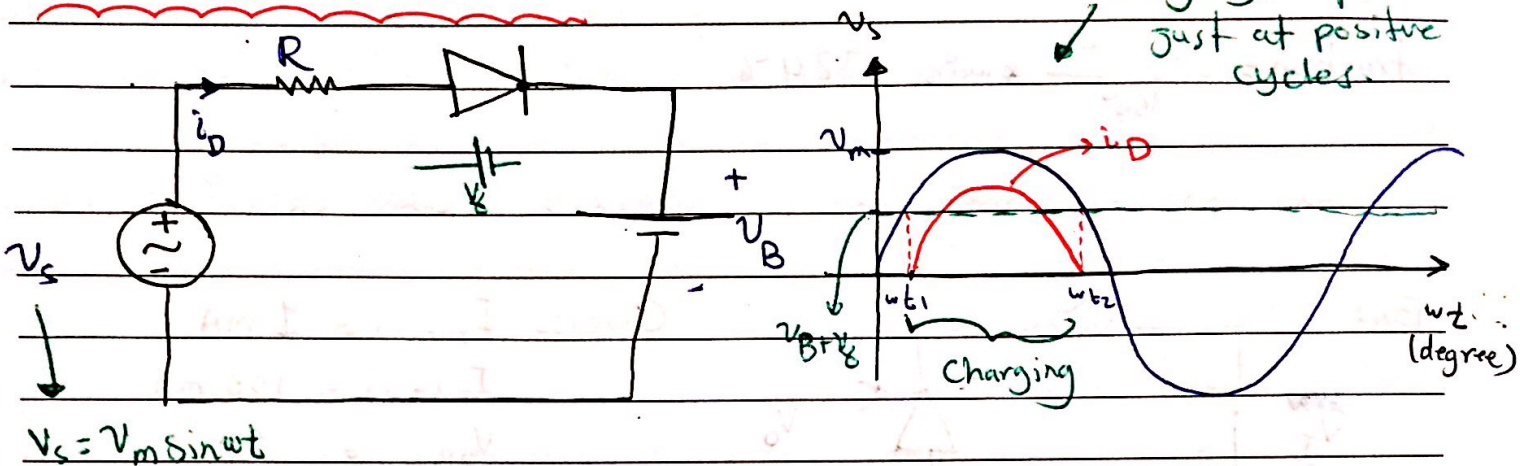 just at positive
cycles.
R
i_D
V_γ
+
V_B
-
V_s
+
~
-
V_s = V_m sin wt
V_s
V_m
i_D
V_B+V_γ
wt_1
wt_2
Charging
wt
(degree)